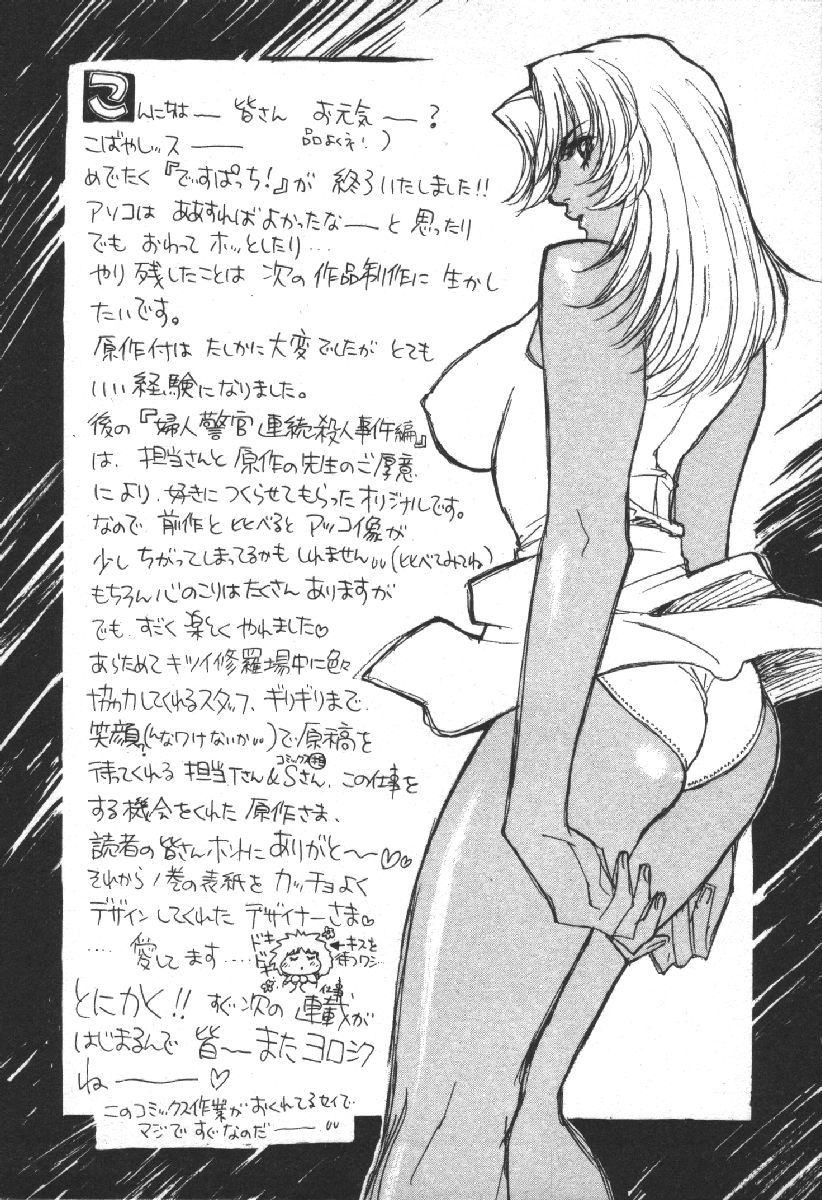 こんにちはー 皆さん お元気ー?
こばやしッスー 品よくネ!)
めでたく『でぃすぱっち!』が 終了いたしました!!
アソコは ああすればよかったなーと 思ったり
でも おわって ホッとしたり…
やり残したことは 次の作品制作に 生かし
たいです。
原作付は たしかに大変でしたが とても
いい経験になりました。
後の『婦人警官連続殺人事件編』
は、担当さんと原作の先生のご厚意
により、好きに つくらせてもらった オリジナルです。
なので 前作と 比べると アッコ像が
少し ちがってしまってるかも しれません(比べてみてね)
もちろん心のこりはたくさん ありますが
でも すごく 楽しく やれました♡
あらためて キツイ修羅場中に色々
協力してくれるスタッフ、ギリギリまで
笑顔?(んなワけないか)で原稿を
待ってくれる 担当Tさん&Sさん、この仕事を
コミックス担当
する機会をくれた 原作さま、
読者の皆さんホントに ありがと〜♡♡
それから1巻の表紙を カッチョよく
デザインしてくれた デザイナーさま♡
…… 愛してます……
ドキ ドキ
←キスを待つワシ…
仕事
とにかく!! すぐ次の 連載が
はじまるんで 皆〜 また ヨロシク
ねー♡
このコミックス作業が おくれてるセイで
マジで すぐなのだー